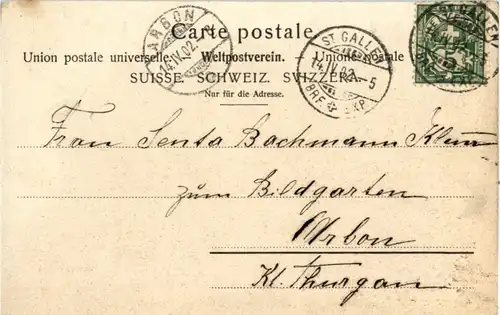 Carte postale.
Union postale universelle. Weltpostverein. Unione postale
SUISSE. SCHWEIZ. SVIZZERA.
Nur für die Adresse.
ARBON
14.IV.02.
ST. GALLEN
14.IV.02.-5
BRF. EXP.
Senta Bachmann
zum Bildgarten
Arbon
Kt. Thurgau